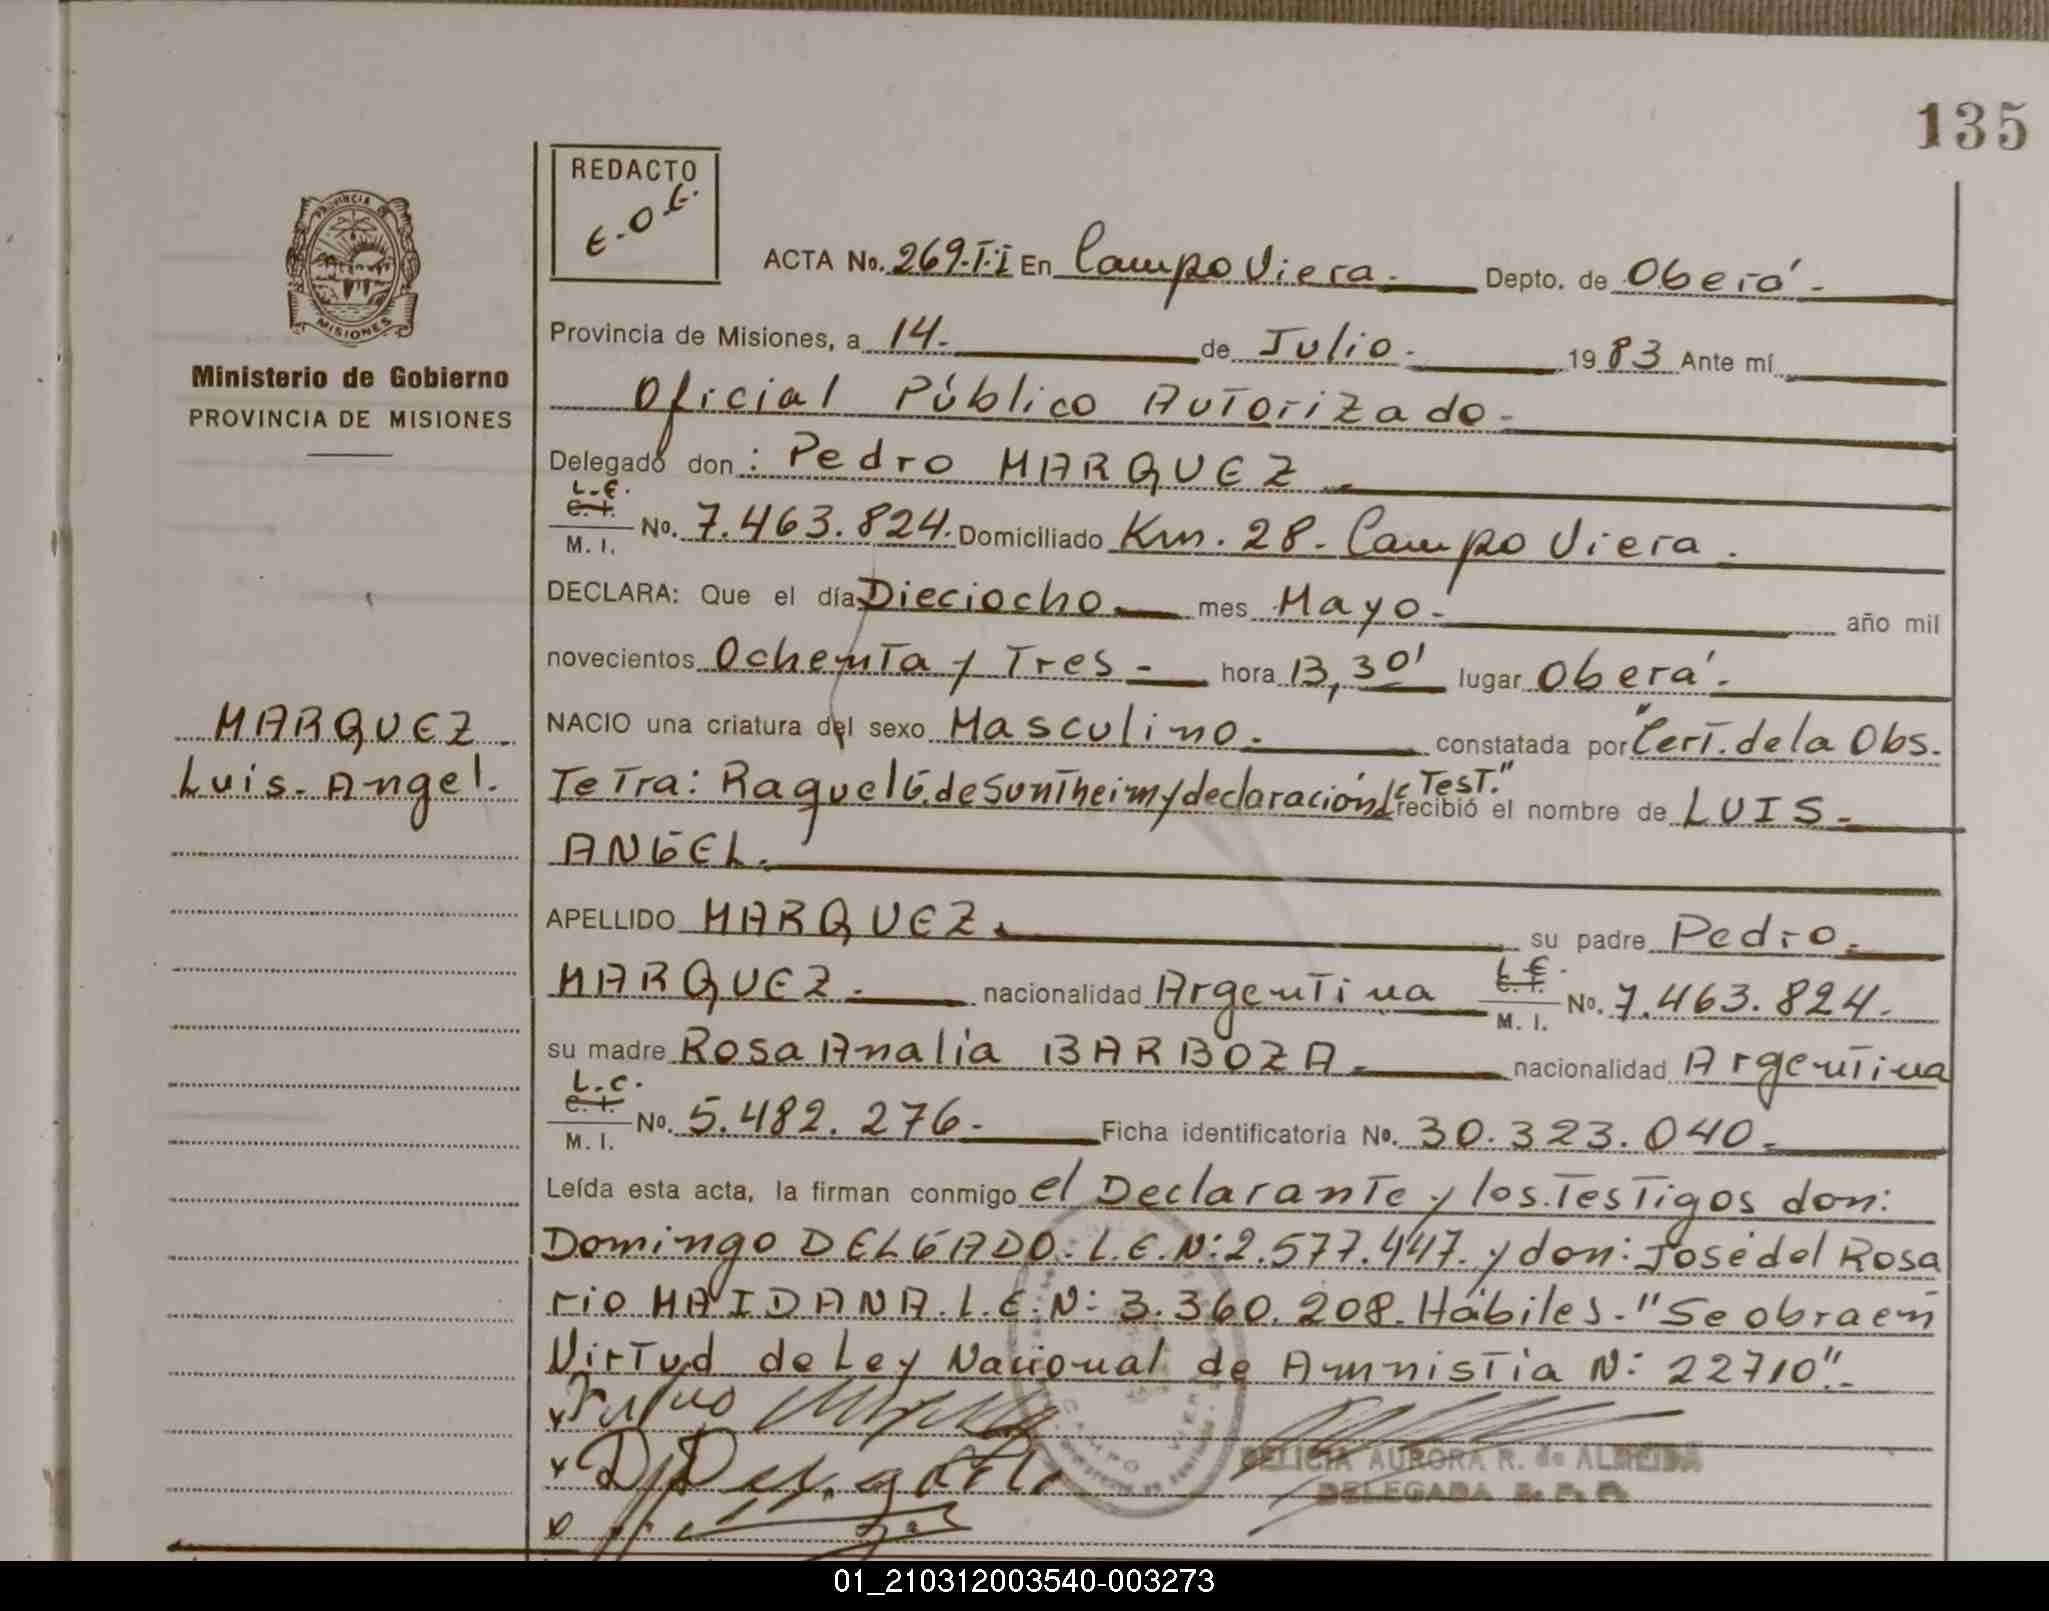 135
REDACTO
E.O.E.
PROVINCIA DE
MISIONES
Ministerio de Gobierno
PROVINCIA DE MISIONES
ACTA No. 269.T.I En Campo Viera.- Depto. de Oberá.-
Provincia de Misiones, a 14.- de Julio.- 1983 Ante mí
Oficial Público Autorizado.-
Delegado don: Pedro MARQUEZ.-
L.E.
C.I.
M. I. No. 7.463.824. Domiciliado Km. 28- Campo Viera.
DECLARA: Que el día Dieciocho mes Mayo.- año mil
novecientos Ochenta y Tres.- hora 13,30' lugar Oberá.-
NACIO una criatura del sexo Masculino.- constatada por "Cert. de la Obs.
Tetra: Raquel G. de Suntheim y declaración /c Test." recibió el nombre de LUIS.-
ANGEL.
MARQUEZ.
Luis. Angel.
APELLIDO MARQUEZ. su padre Pedro.-
MARQUEZ.- nacionalidad Argentina L.E. C.I. M. I. No. 7.463.824.
su madre Rosa Analia BARBOZA. nacionalidad Argentina
L.C.
C.I.
M. I. No. 5.482.276.- Ficha identificatoria No. 30.323.040.-
Leída esta acta, la firman conmigo el Declarante y los Testigos don:
Domingo DELGADO. L.E. N: 2.577.447. y don: José del Rosa
rio MAIDANA. L.E. N: 3.360.208. Hábiles.- "Se obra en
Virtud de Ley Nacional de Amnistia N: 22710".-
CAMPO VIERA
DELICIA AURORA R. de ALMEIDA
DELEGADA
01_210312003540-003273